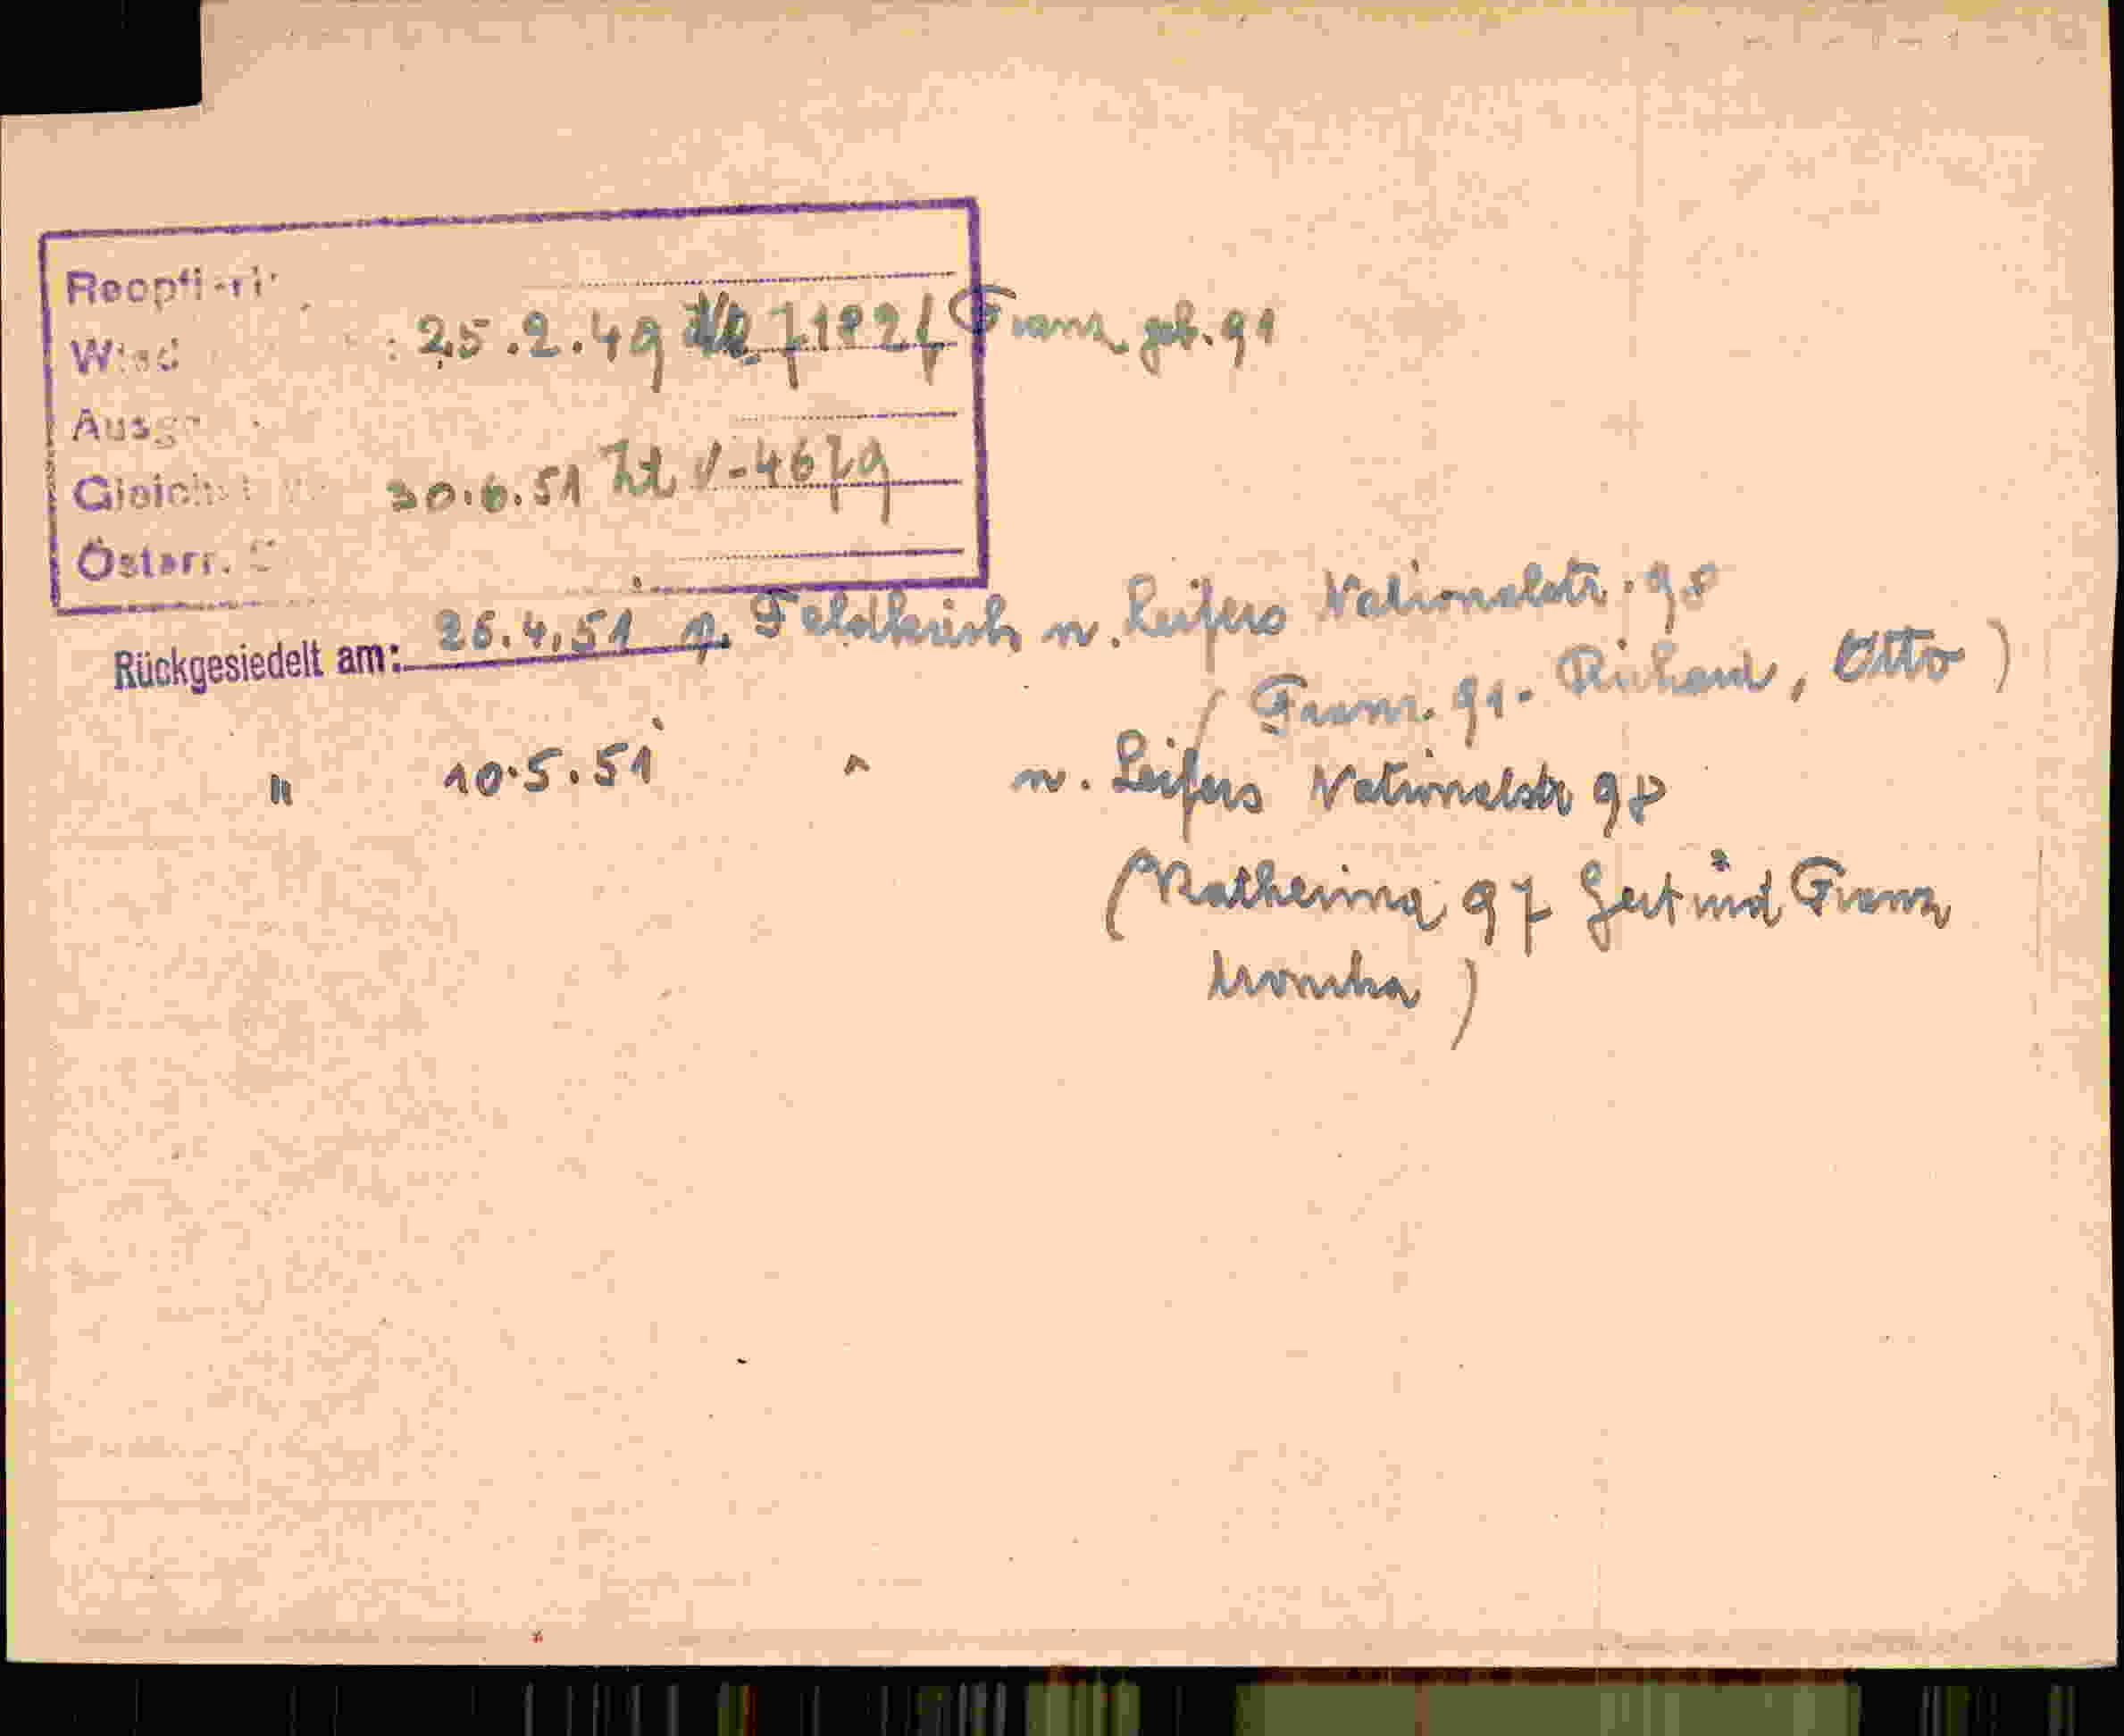 Reoptiert
Wied : 25.2.49 7182 Franz geb. 91
Ausge
Gleich 30.6.51 Zl V-4679
Österr. S
Rückgesiedelt am: 26.4.51 v. Feldkirch n. Leifers Nationalstr. 98
(Franz. 91. Richard, Otto)
" 10.5.51 " n. Leifers Nationalstr 98
(Katherina 97 Gert und Franz
Monika)